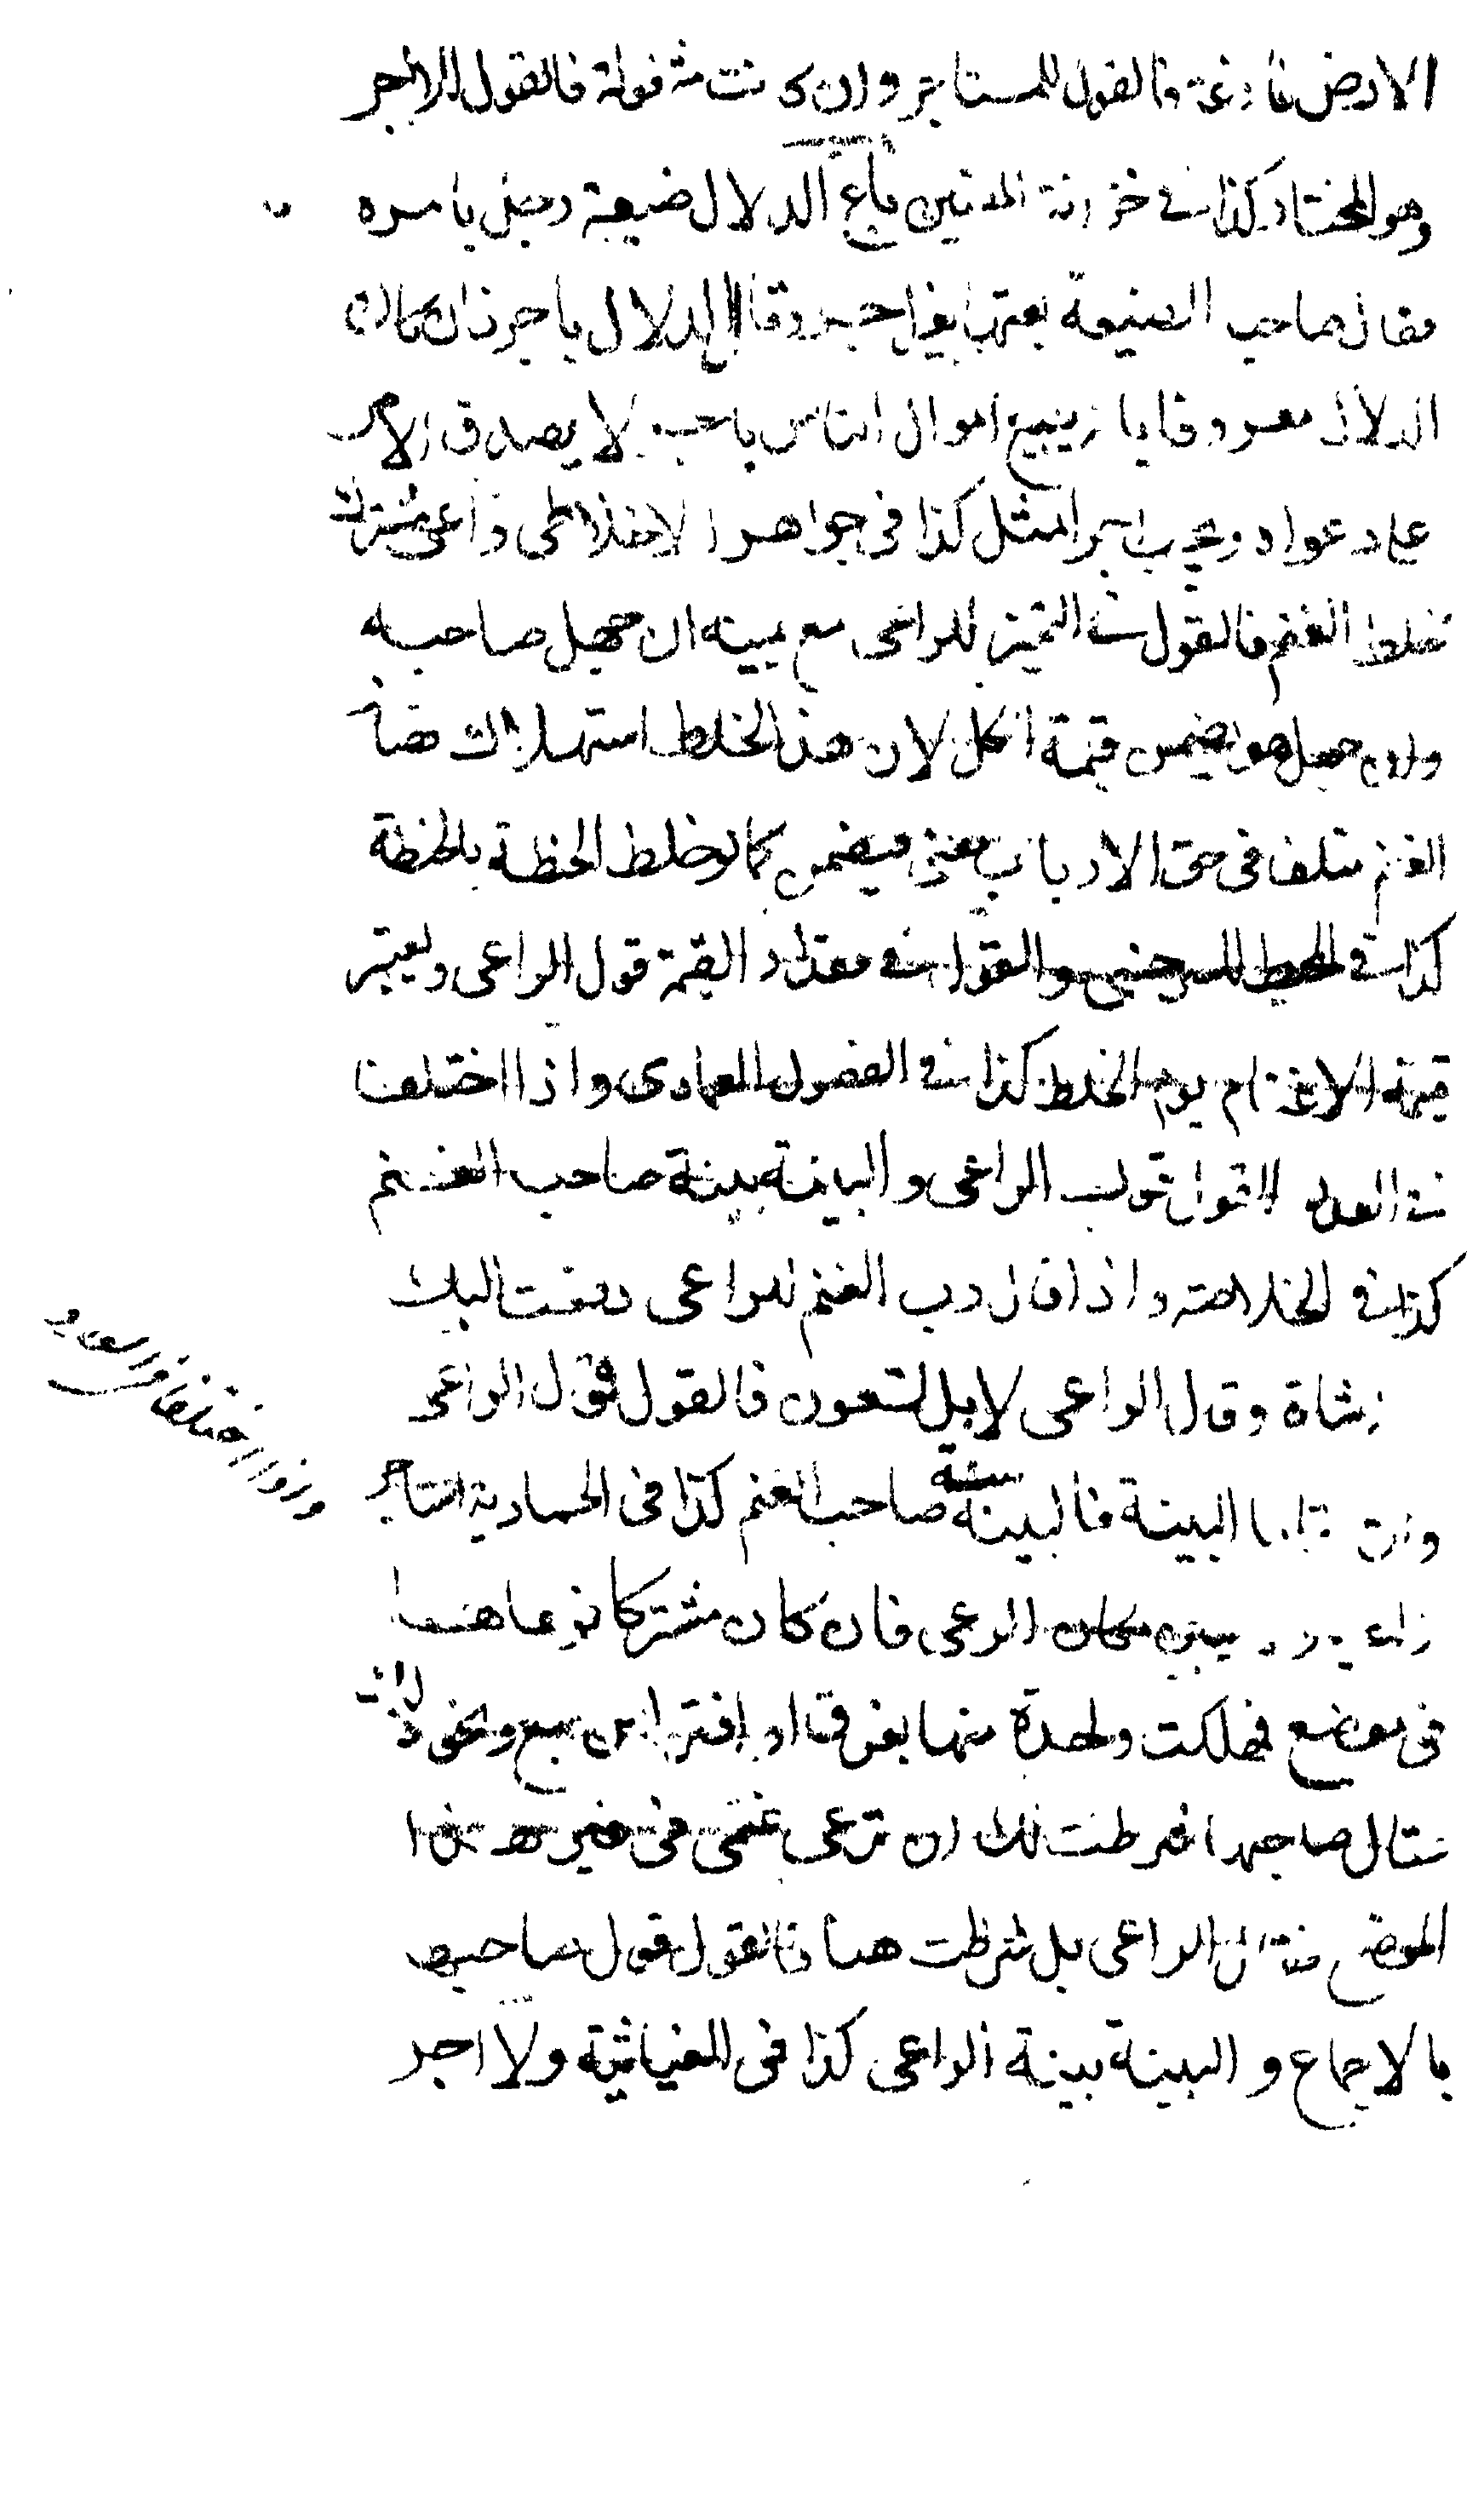 الارض فارغة فالقول للمستاجر وان كانت مشغولة فالقول للآجر
وهو المختار كذا في خزانة المفتين باع الدلال ضيعة رجل بامره
فقال صاحب الضيعة بعتها بغير اجر وقال الدلال باجر فان كان
الدلال معروفا بانه يبيع اموال الناس باجر لا يصدق الآمر
على دعواه ويجب اجر المثل كذا في جواهر الاخلاطي راعى مشترك
خلط الغنم فالقول في التمييز للراعى مع يمينه ان جهل صاحبه
وان جهل هو يضمن قيمة الكل لان هذا الخلط استهلاك فصار
الغنم متلفا في حق الارباب معنى فيضمن كما لو خلط الحنطة بالحنطة
كذا في المحيط للسرخسي والقول في مقدار القيمة قول الراعى ويعتبر
قيمة الاغنام يوم الخلط كذا في الفصول العمادى واذا اختلفا
في العدد القول قول الراعى والبينة بينة صاحب الغنم
كذا في الخلاصة واذا قال رب الغنم للراعى دفعت اليك
شاة وقال الراعى لا بل تسعون فالقول قول الراعى
وان اقاما البينة فالبينة بينة صاحب الغنم كذا في الحمادية استاجر
راعيا ولم يبين مكان الرعى فان كان مشتركا فرعاها
في موضع فهلكت واحدة منها بغرق او افتراس سبع ونحو ذلك
فقال صاحبها شرطت لك ان ترعى غنمي في غير هذا
الموضع فقال الراعى بل شرطت هنا فالقول قول صاحبها
بالاجماع والبينة بينة الراعى كذا في الغياثية ولا اجر
واذا اختلفا في العدد